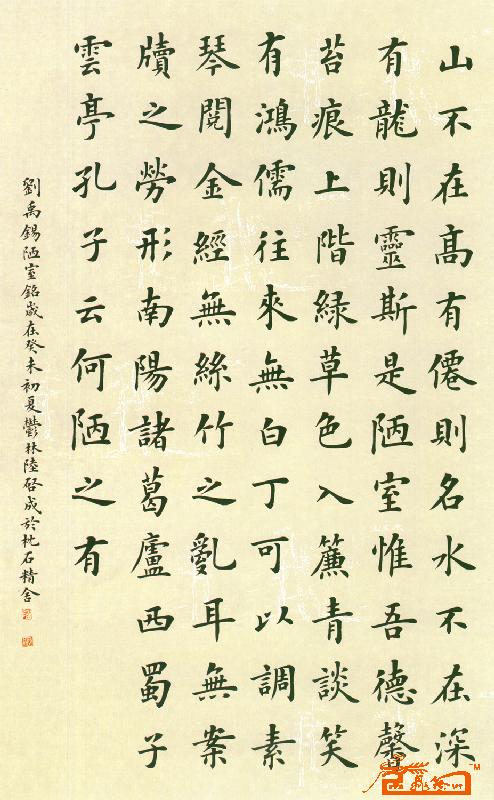 山不在高有僊則名水不在深
有龍則靈斯是陋室惟吾德馨
苔痕上階緑草色入簾青談笑
有鴻儒往來無白丁可以調素
琴閲金經無絲竹之亂耳無案
牘之勞形南陽諸葛廬西蜀子
雲亭孔子云何陋之有
劉禹錫陋室銘歲在癸未初夏鬱林陸啓成於枕石精舍